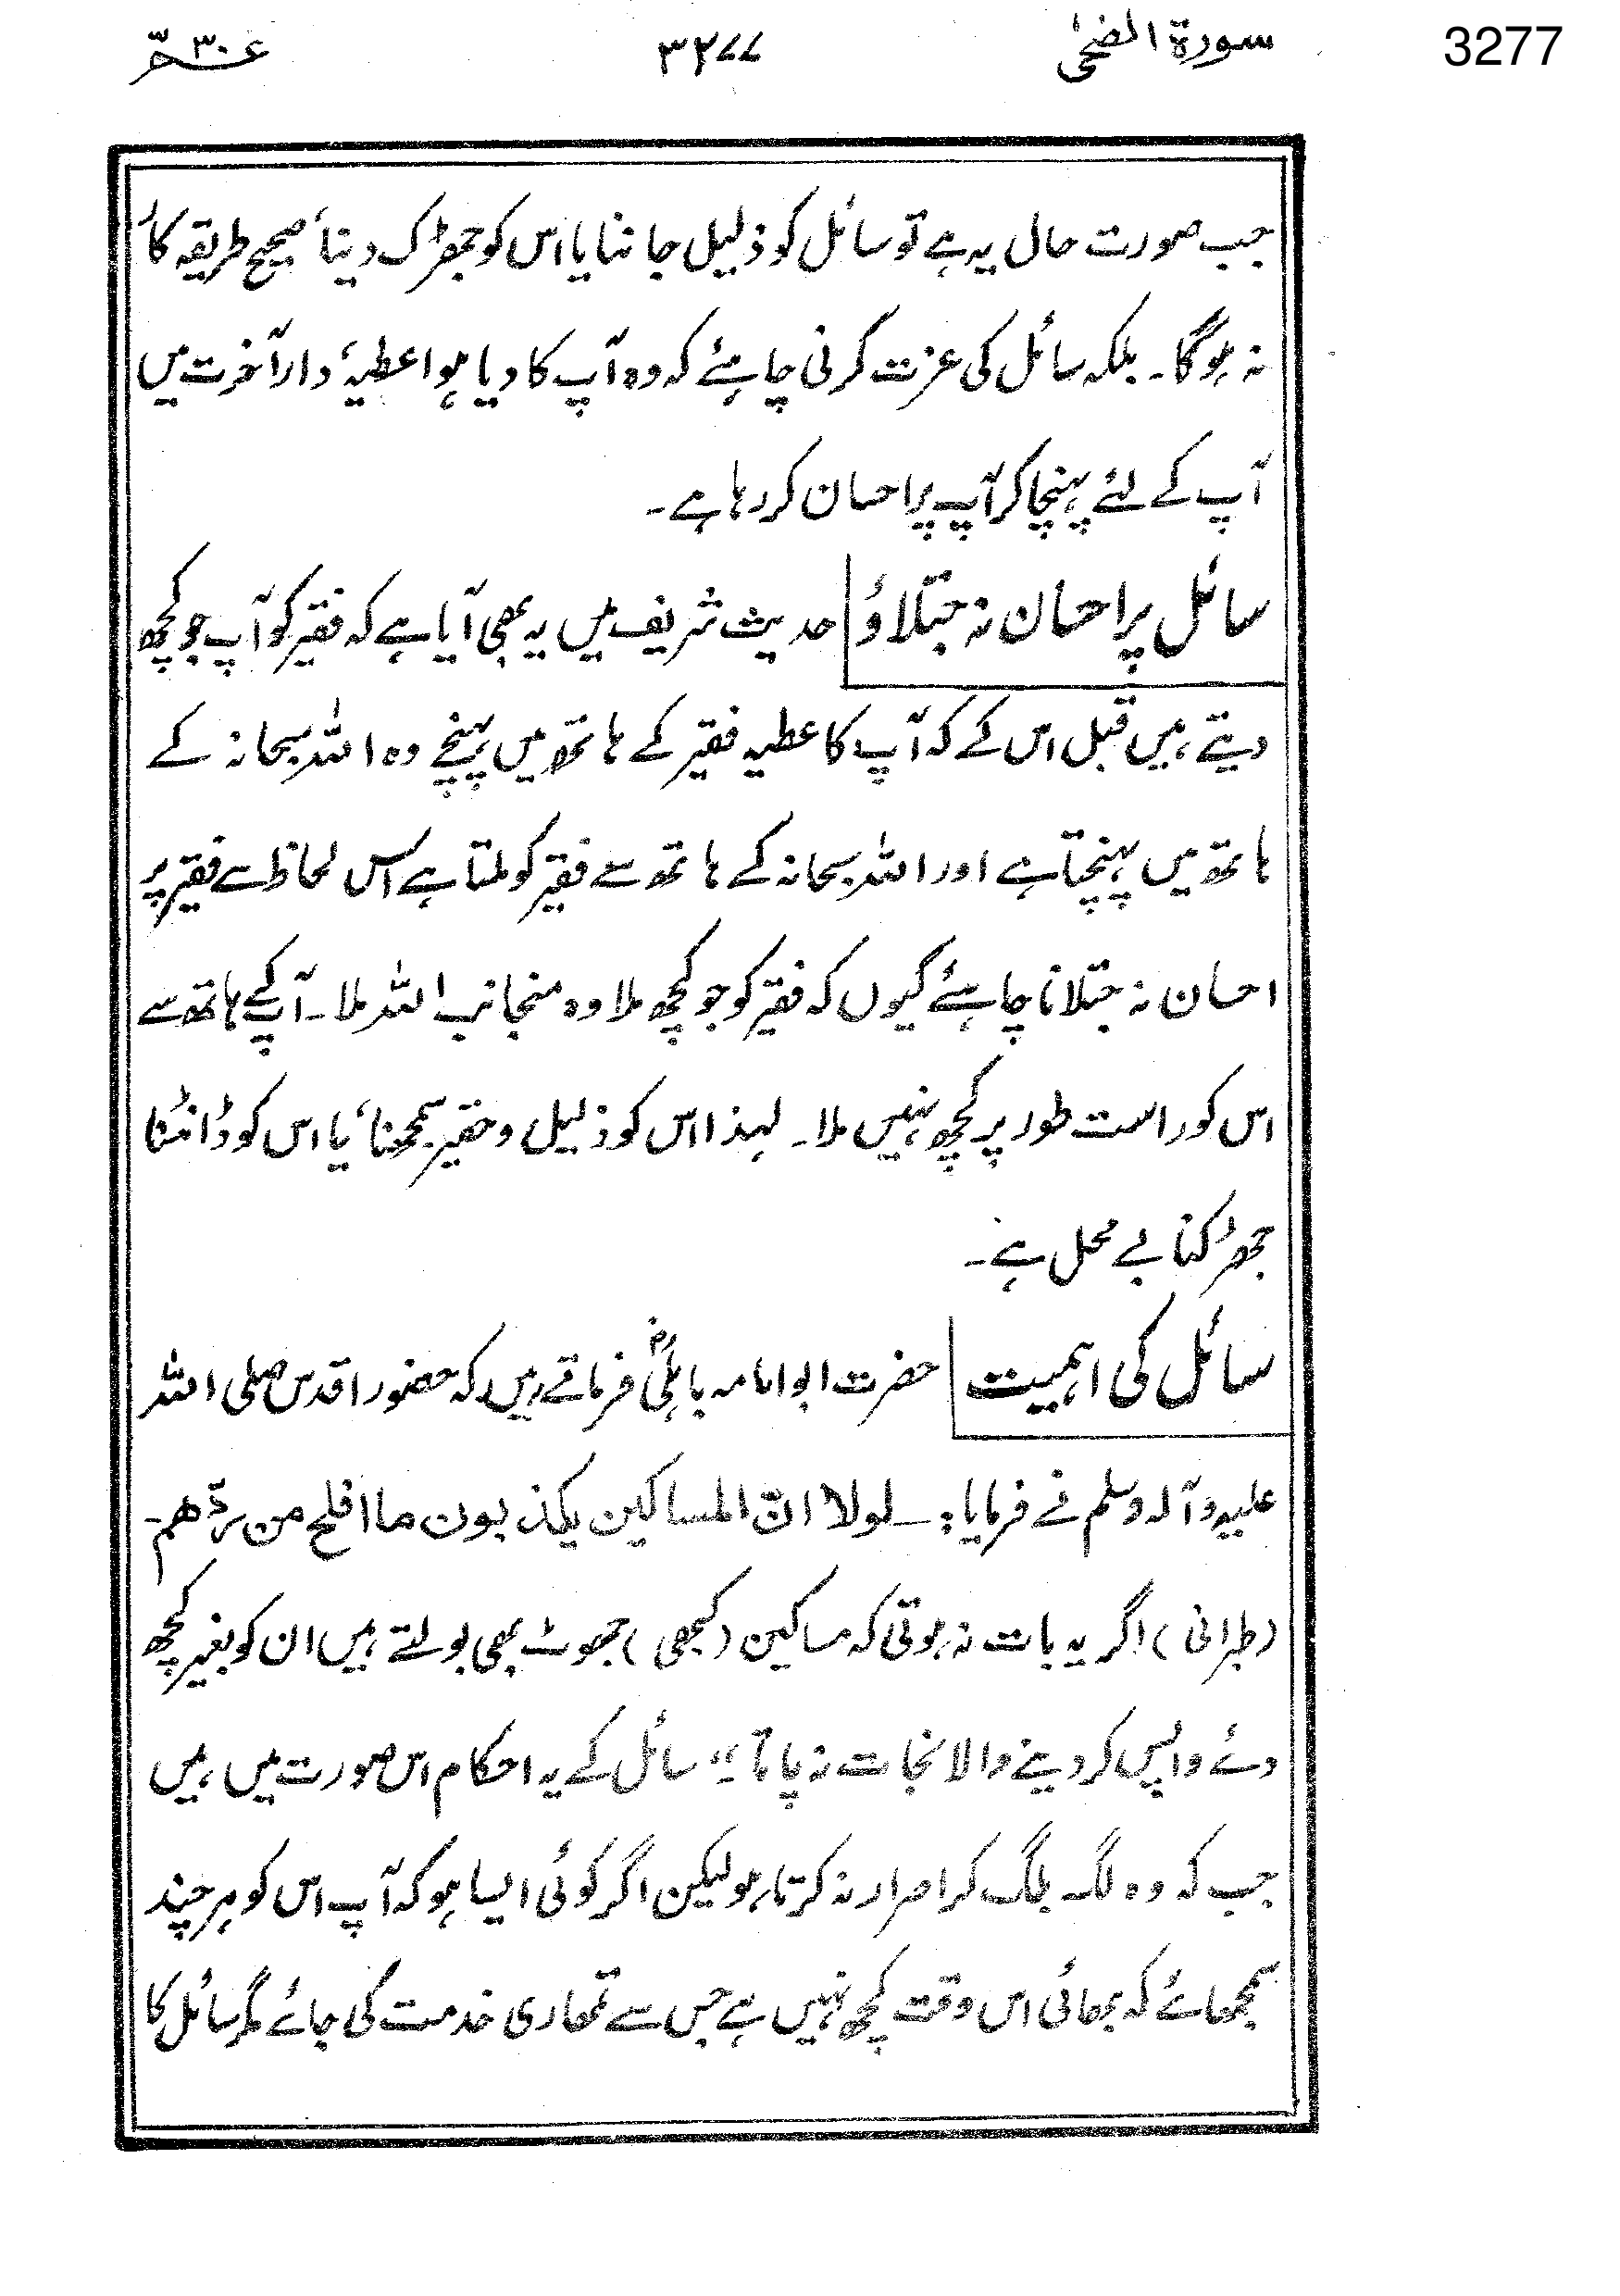 سورۃ الضحٰی ۳۲۷۷ عمّ ۳۰ 3277
جب صورت حال یہ ہے تو سائل کو ذلیل جاننا یا اس کو جھڑک دینا، صحیح طریقہ کار
نہ ہوگا۔ بلکہ سائل کی عزت کرنی چاہئے کہ وہ آپ کا دیا ہوا عطیہ، دار آخرت میں
آپ کے لئے پہنچا کر آپ پر احسان کر رہا ہے۔
سائل پر احسان نہ جتلاؤ حدیث شریف میں یہ بھی آیا ہے کہ فقیر کو آپ جو کچھ
دیتے ہیں قبل اس کے کہ آپ کا عطیہ فقیر کے ہاتھ میں پہنچے وہ اللہ سبحانہ کے
ہاتھ میں پہنچتا ہے اور اللہ سبحانہ کے ہاتھ سے فقیر کو ملتا ہے اس لحاظ سے فقیر پر
احسان نہ جتلانا چاہئے کیوں کہ فقیر کو جو کچھ ملا وہ منجانب اللہ ملا۔ آپ کے ہاتھ سے
اس کو راست طور پر کچھ نہیں ملا۔ لہذا اس کو ذلیل و حقیر سمجھنا، یا اس کو ڈانٹنا
جھڑکنا بے محل ہے۔
سائل کی اہمیت حضرت ابو امامہ باہلیؓ فرماتے ہیں کہ حضور اقدس صلی اللہ
علیہ وآلہ وسلم نے فرمایا:۔ لولا انّ المساکین یکذبون ما افلح من ردّھم۔
(طبرانی) اگر یہ بات نہ ہوتی کہ مساکین (کبھی) جھوٹ بھی بولتے ہیں ان کو بغیر کچھ
دئے واپس کر دینے والا نجات نہ پاتا۔" سائل کے یہ احکام اس صورت میں ہیں
جب کہ وہ لگ بلگ کر اصرار نہ کرتا ہو لیکن اگر کوئی ایسا ہو کہ آپ اس کو ہر چند
سمجھائے کہ بھائی اس وقت کچھ نہیں ہے جس سے تمھاری خدمت کی جائے مگر سائل کا